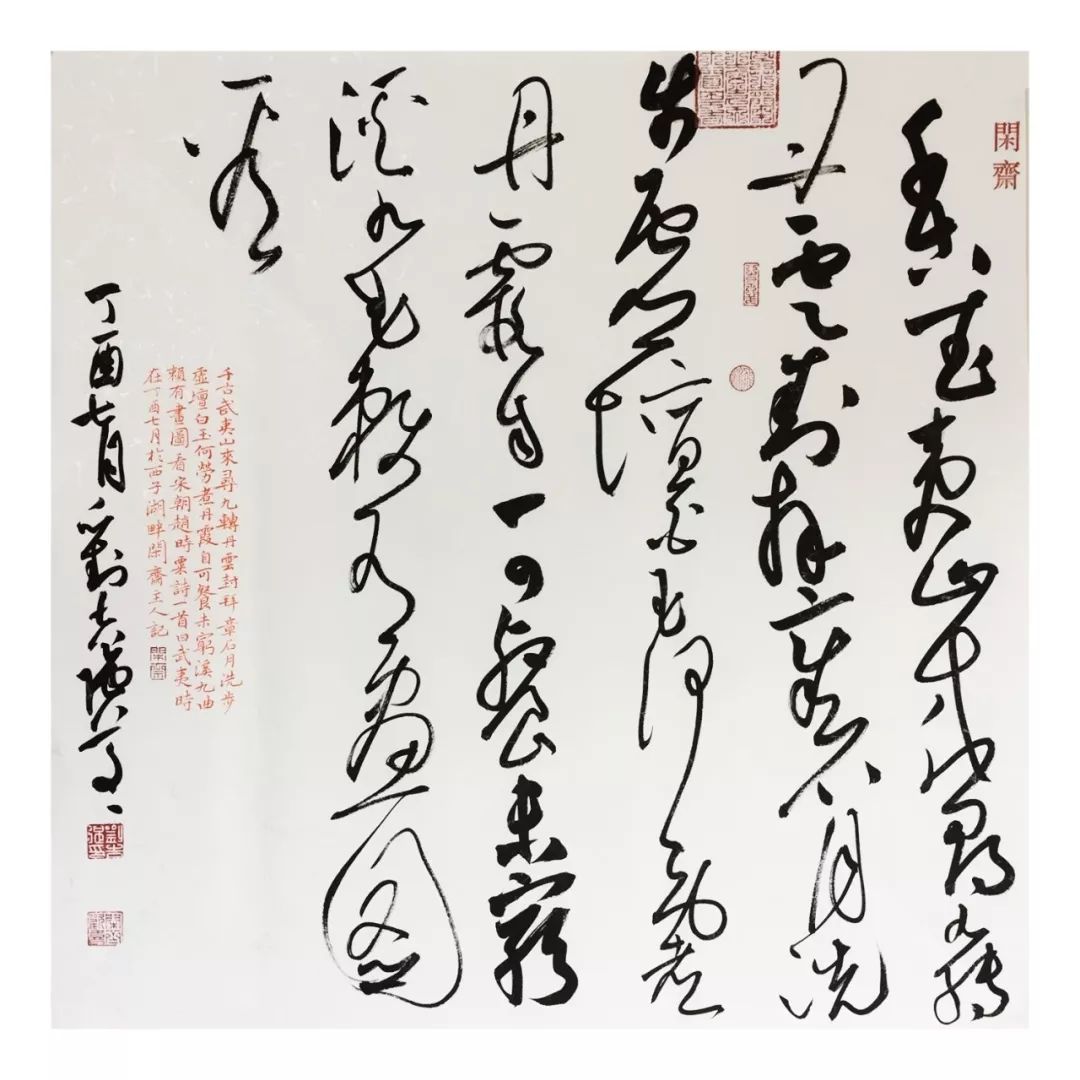 閑齋
千古武夷山來尋九轉
丹雲封拜章石月洗
步虛壇白玉何勞煮
丹霞自可餐未窮
溪九曲賴有畫圖
看
千古武夷山來尋九轉丹雲封拜章石月洗步
虛壇白玉何勞煮丹霞自可餐未窮溪九曲
賴有畫圖看宋朝趙時粟詩一首曰武夷時
在丁酉七月於西子湖畔閑齋主人記
閑齋
丁酉七月劉